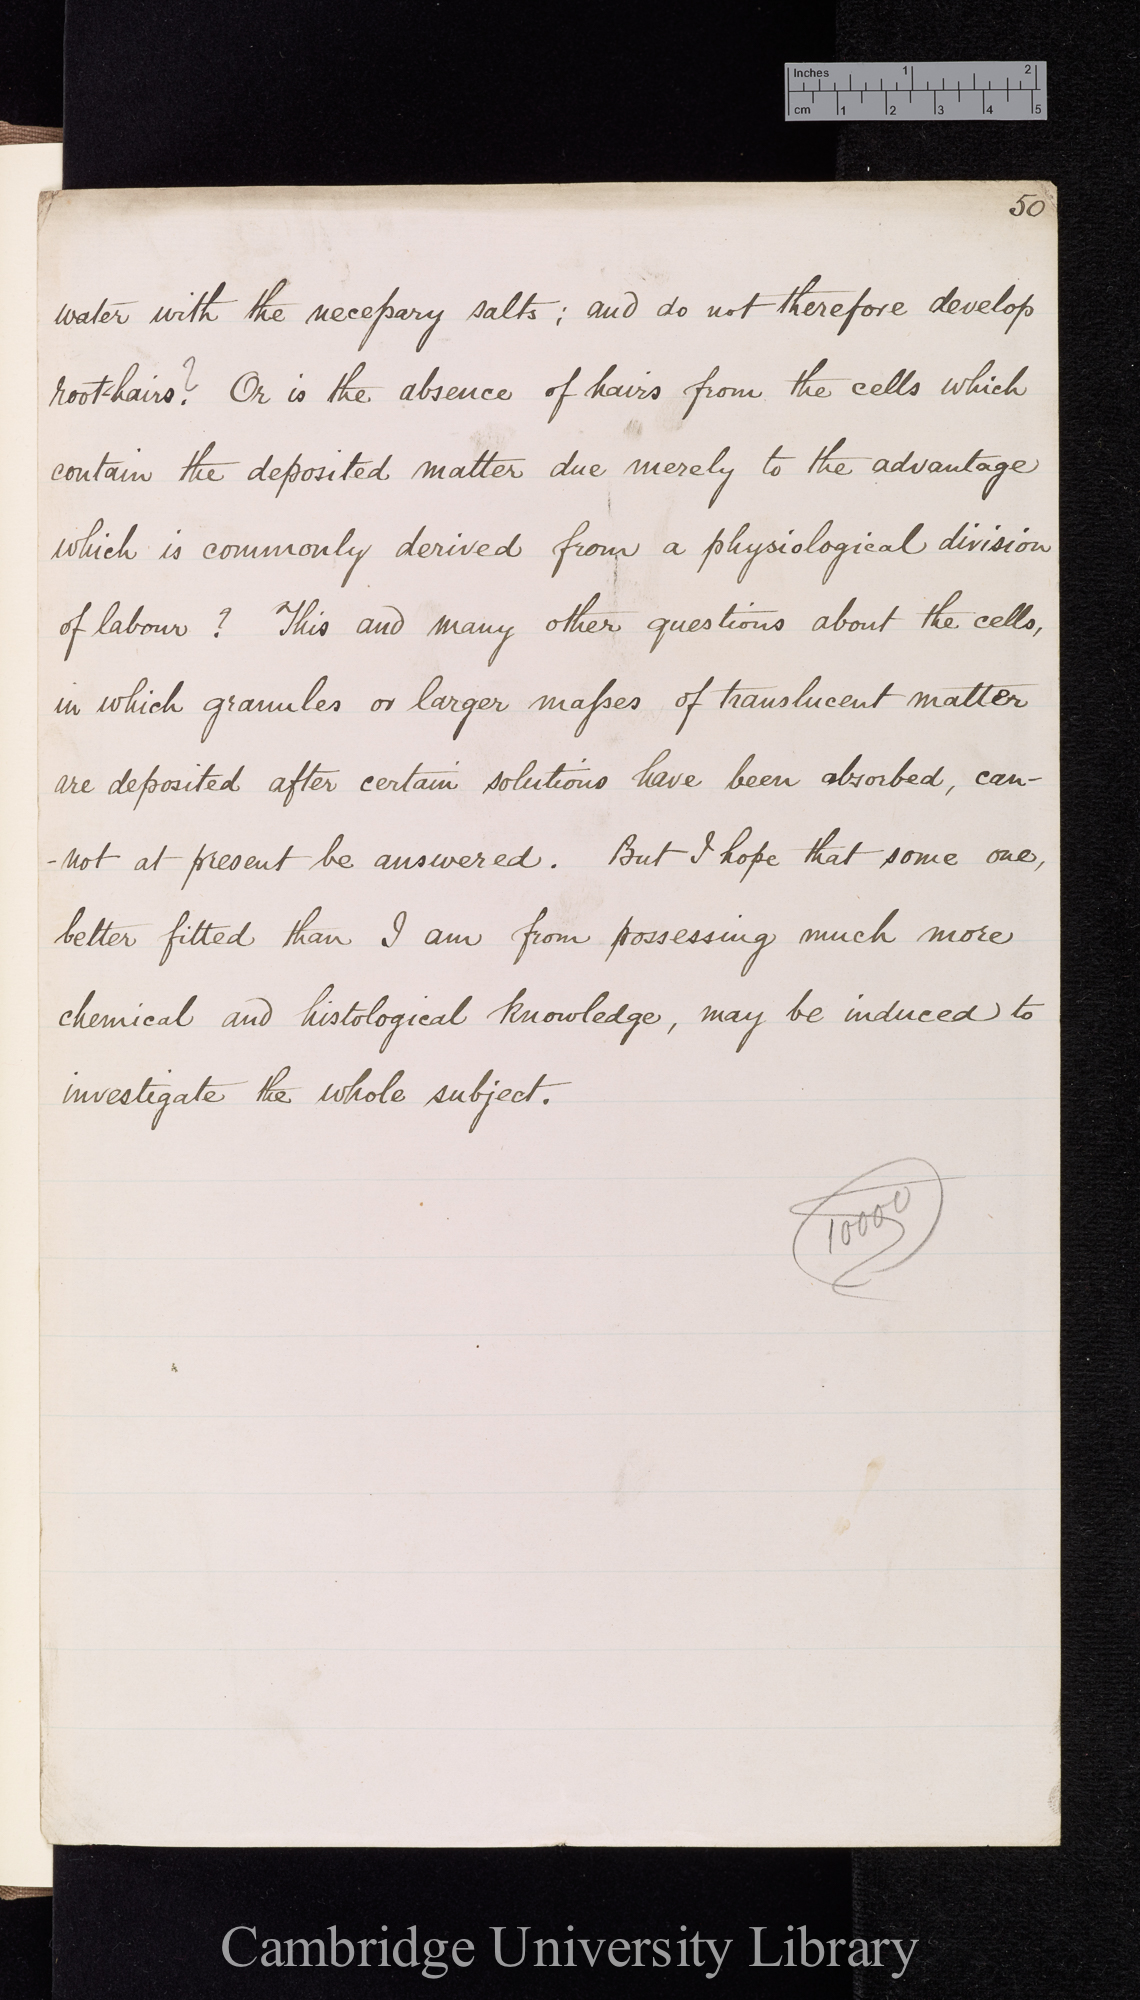 Inches 1 2
cm 1 2 3 4 5
50
water with the necessary salts; and do not therefore develop
root-hairs? Or is the absence of hairs from the cells which
contain the deposited matter due merely to the advantage
which is commonly derived from a physiological division
of labour? This and many other questions about the cells,
in which granules or larger masses of translucent matter
are deposited after certain solutions have been absorbed, can-
-not at present be answered. But I hope that some one,
better fitted than I am from possessing much more
chemical and histological knowledge, may be induced to
investigate the whole subject.
10000
Cambridge University Library